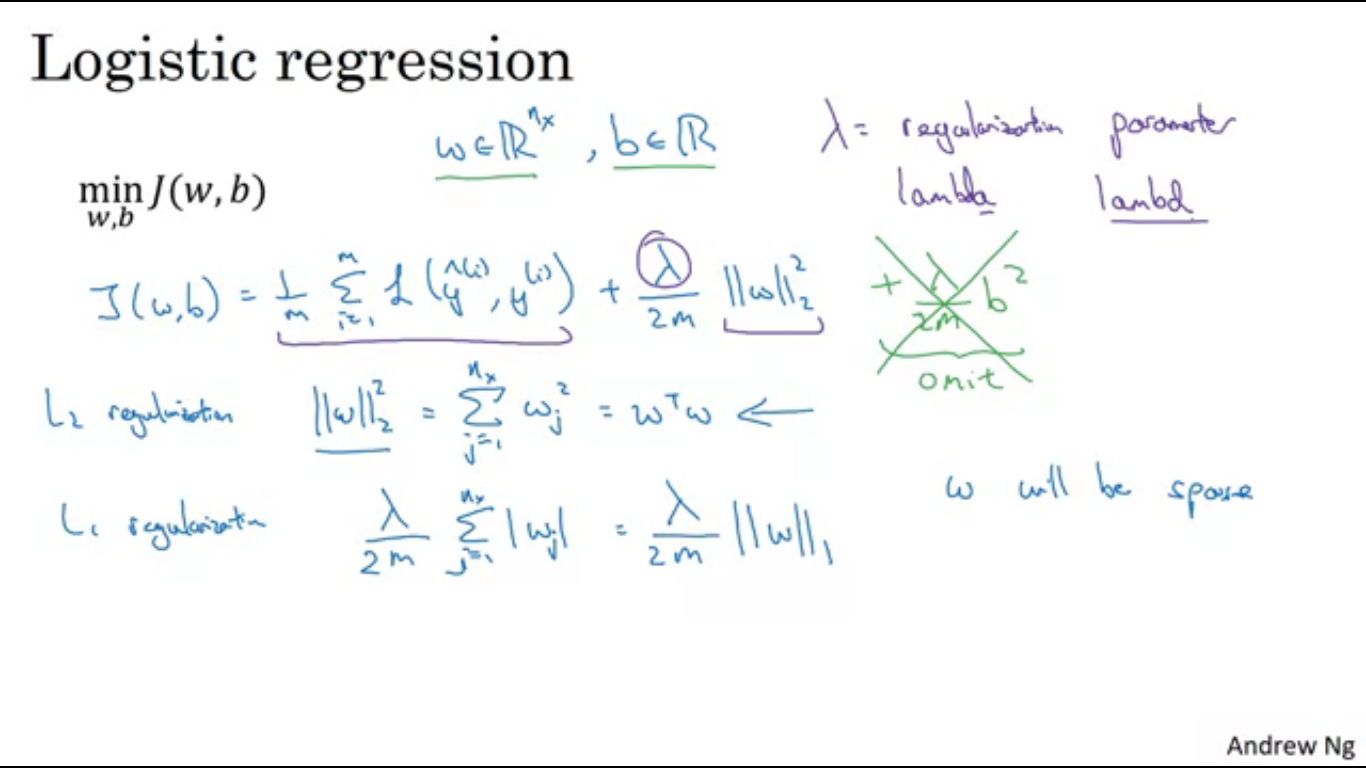 Logistic regression
w ∈ ℝ^{n_x}, b ∈ ℝ
λ = regularization parameter
lambda lambd
min_{w,b} J(w, b)
J(w,b) = 1/m Σ_{i=1}^{m} L(ŷ^{(i)}, y^{(i)}) + λ/2m ||w||_2^2
+ λ/2m b^2
omit
L_2 regularization ||w||_2^2 = Σ_{j=1}^{n_x} w_j^2 = w^T w ←
L_1 regularization λ/2m Σ_{j=1}^{n_x} |w_j| = λ/2m ||w||_1
w will be sparse
Andrew Ng